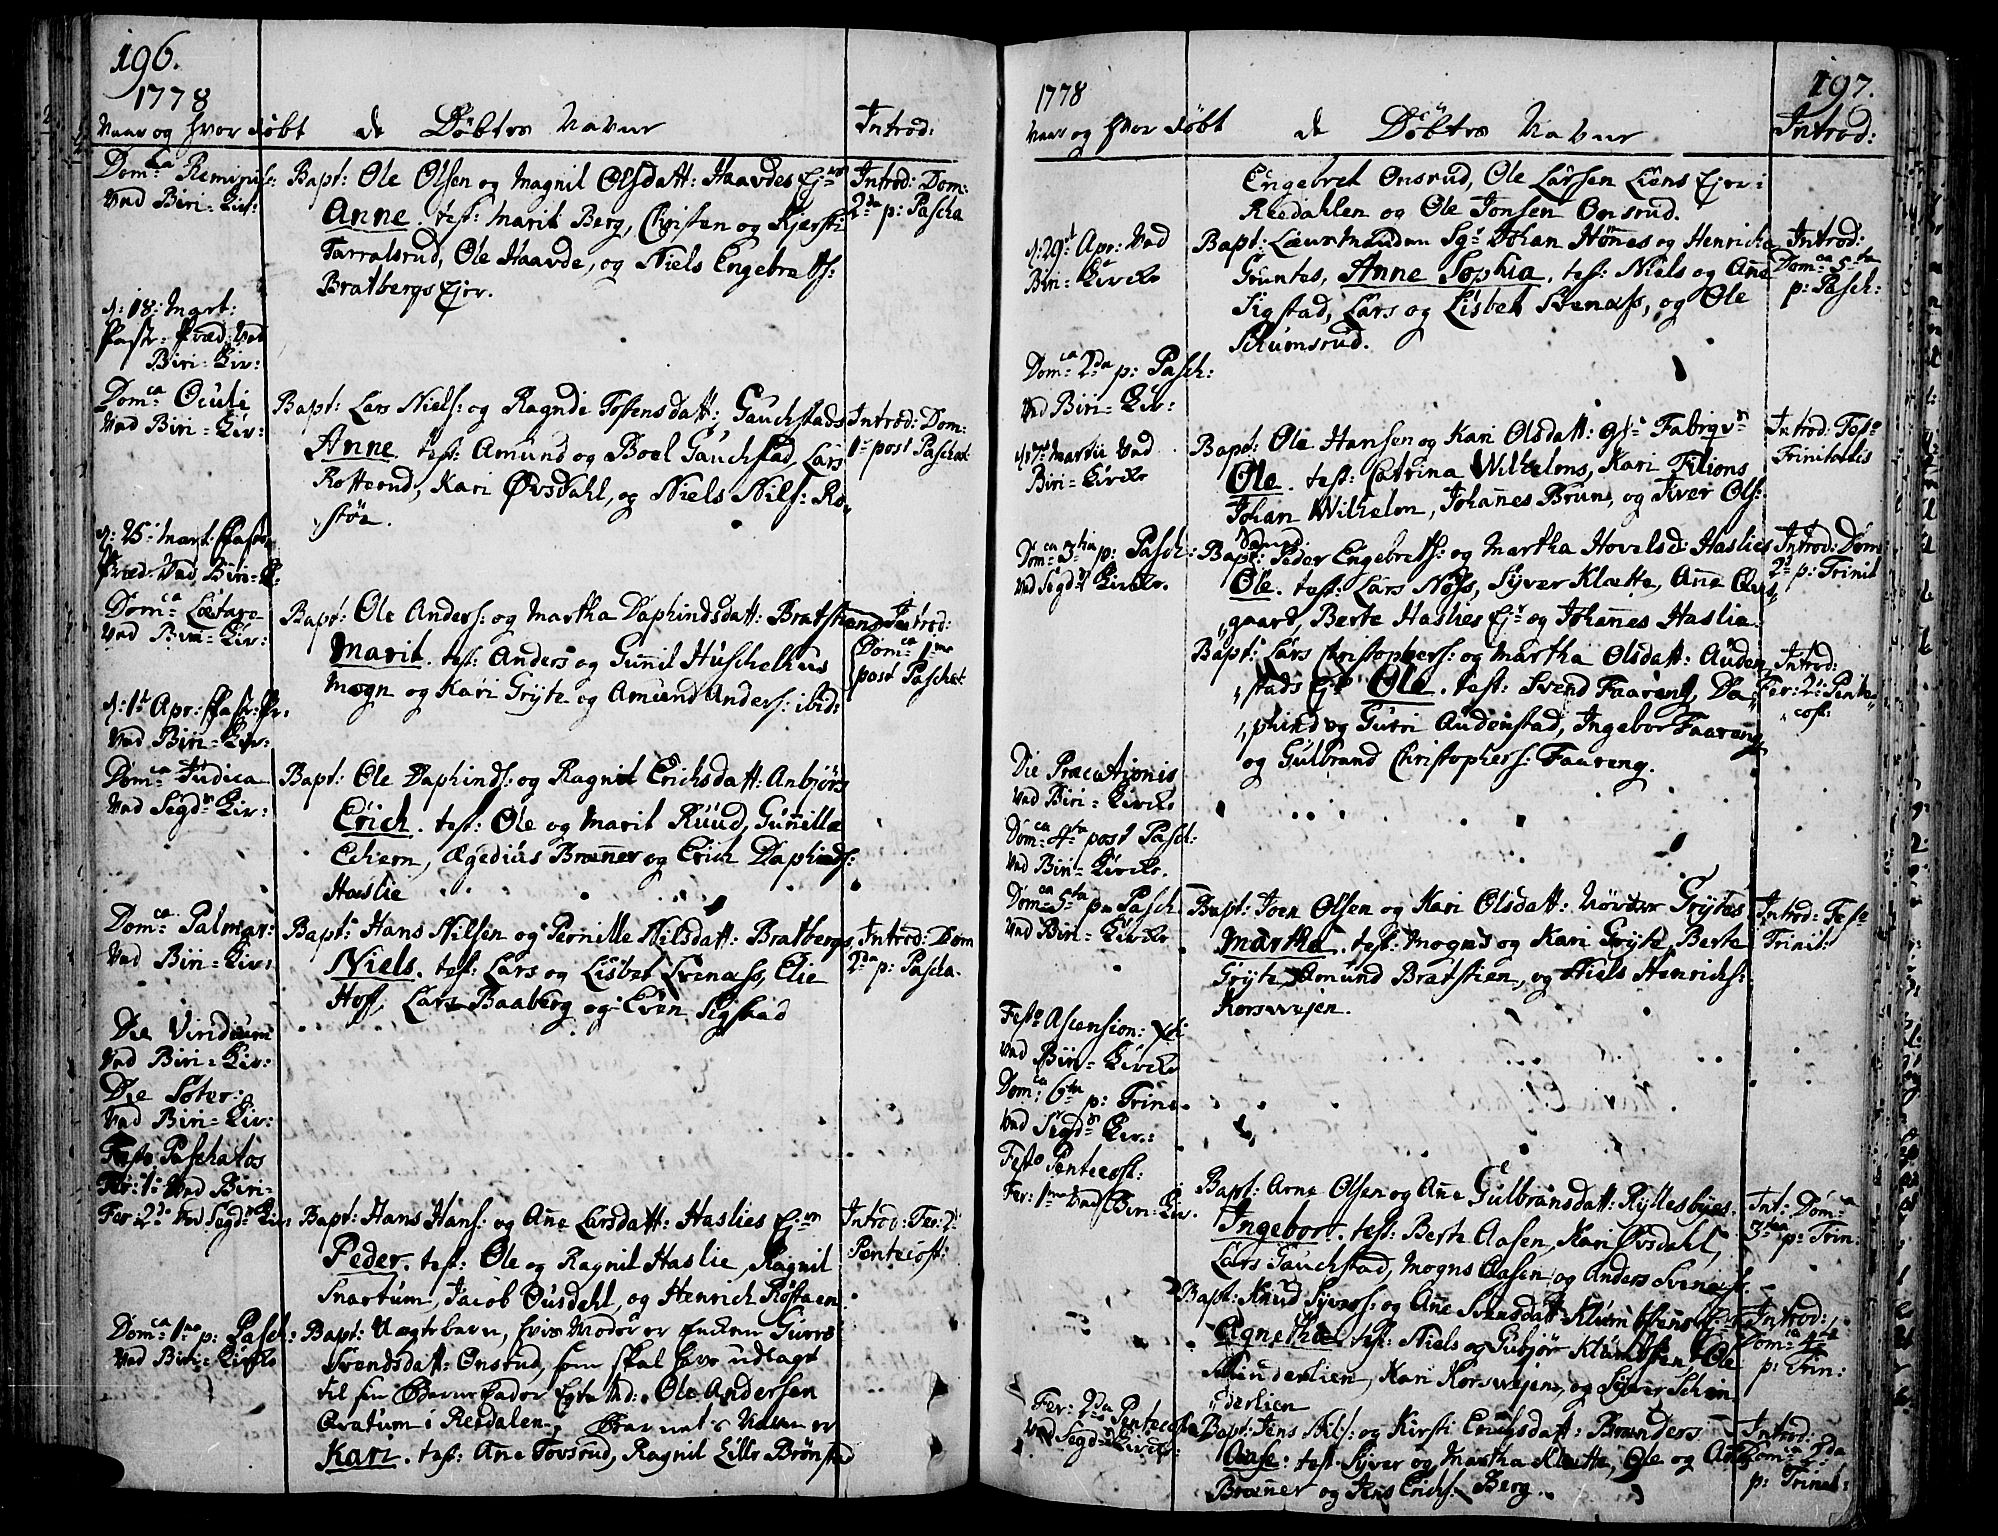 196.
1778
Naar og hvor døbt
de Døbtes Navne
Introd:
Dom:ca Reminisc:
Ved Biri=Kir:
Bapt: Ole Olsen og Magnil Olsdatt: Haavdes Ej:
Anne. test: Marit Berg, Christen og Kjersti
Tarralsrud, Ole Haavde, og Niels Engebretts:
Bratbergs Ejer.
Introd: Dom:
2da p: Pascha
d: 18: Mart:
Past: Præd: Ved
Biri=Kir:
Dom:ca Oculi
Ved Biri=Kir:
Bapt: Lars Niels: og Ragnde Tostensdatt: Gauchstads
Anne. test: Amund og Boel Gauchstad, Lars
Rotterud, Kari Øvsdahl, og Niels Nils: Ro,
støe.
Introd: Dom:
1: post Paschat
d: 25: Mart: Past:
Præd: Ved Biri=K:
Dom:ca Lætare
Ved Biri=Kir:
Bapt: Ole Anders: og Martha Daphindsdatt: Bratstiens
Marit. test: Anders og Gunnil Huschelhus
Mogn og Kari Gryte og Amund Anders: ibid:
Introd:
Dom:ca 1me
post Paschat:
d: 1: Apr: Past: Pr.
Ved Biri=Kir:
Dom:ca Judica
Ved Segd: Kir:
Bapt: Ole Daphinds: og Ragnil Erichsdatt: Anbjørs
Erich. test: Ole og Marit Ruud, Gunnilla
Echern, Ægedius Brænner og Erich Daphinds:
Haslie
Dom:ca Palmar:
Ved Biri=Kir:
Bapt: Hans Nilsen og Pernille Nilsdatt: Bratbergs
Niels. test: Lars og Lisbet Svenæss, Elie
Hoff, Lars Baaberg og Even Sigstad
Introd: Dom
2da p: Pascha.
Die Viridium
Ved Biri=Kir:
Die Soter:
Ved Biri=Kir:
Festo Paschatos
Fer: 1: Ved Biri=
Fer: 2da Ved Segd: Kir
Bapt: Hans Hans: og Ane Larsdatt: Haslies Ej:
Peder. test: Ole og Ragnil Haslie, Ragnil
Snartum, Jacob Øusdahl, og Henrich Røstøen
Introd: Fer: 2:
Pentecost:
Dom:ca 1ma p: Pasch:
Ved Biri=Kirke
Bapt: Uægtebarn, hvis Moder er Enken Guro
Svendsdatt: Onsrud, som skal have udlagt
til sin Barnefader Egte Md: Ole Andersen
Øvatum i Reedalen, Barnets Navn er
Kari. test: Ane Tovsrud, Ragnil Lille Brønstad
197.
1778
Naar og hvor døbt
de Døbtes Navne
Introd:
Engebret Onsrud, Ole Larsen Liens Ejer:
Reedahlen og Ole Jonsen Onsrud.
d: 29: Apr: Ved
Biri=Kirke
Bapt: Leutnanden Sr: Johan Hønes og Henricha
Gruntes, Anne Sophia. test: Niels og Ane
Sigstad, Lars og Lisbet Svenæss, og Ole
Schumsrud.
Introd:
Dom:ca 5:ta
p: Pasch:
Dom:ca 2da p: Pasch:
Ved Biri=Kir:
d: 7: Martii Ved
Biri=Kirke
Bapt: Ole Hansen og Kari Olsdatt: Fabriqv:
Ole. test: Catrina Wilhelms, Kari Filions
Johan Wilhelm, Johanes Brun, og Iver Ols:
Introd: Festo
Trinitatis
Dom:ca 3:tia p: Pasch:
Ved Segd: Kirke.
Bapt: Peder Engebretts: og Martha Hovelsd: Haslies
Ole. test: Lars Nøss, Syver Klætte, Ane Ovs,
gaard, Berte Haslies Ej: og Johanes Haslie.
Introd: Dom:
2d: p: Trinit
Bapt: Lars Christophers: og Martha Olsdatt: Auden,
stads Ej: Ole. test: Svend Faareng, Da,
phind og Guri Audenstad, Ingebor Faareng
og Gulbrand Christophers: Faareng.
Introd:
Fer: 2: Pente,
cost:
Die Precationis
Ved Biri=Kirke
Dom:ca 4:ta post Pasch:
Ved Biri=Kirke.
Dom:ca 5:ta p: Pasch
Ved Biri=Kirke
Bapt: Joen Olsen og Kari Olsdatt: Nørdre Grytes
Martha. test: Mogns og Kari Gryte, Berte
Gryte, Amund Bratstien, og Niels Henrichs:
Korsvejen.
Introd: Festo
Trinit:
Festo Ascension: Xti
Ved Biri=Kirke
Dom:ca 6:ta p: Trin:
Ved Segd: Kir:
Festo Pentecost.
Fer: 1ma Ved Biri=Kir.
Bapt: Arne Olsen og Ane Gulbransdatt: Kyllesbyes.
Ingebor. test: Berte Aasen, Kari Øvsdahl,
Lars Gauchstad, Mogns Aasen, og Anders Svenæss.
Int: Dom:ca
3:tia p: Trin.
Bapt: Knud Syvers: og Ane Svensdatt: Klumstens
Agnetha. test: Niels og Gubjør Klumsten, Ole
Schunderlien, Kari Korsvejen, og Syver Schun
derlien
Introd:
Dom:ca 4:ta
p: Trin:
Fer: 2da Pentecoste
Ved Segd: Kirke:
Bapt: Jens Nils: og Kirsti Erichsdatt: Brænders
Aase: test: Syver og Martha Klætte, Ole og Ane
Brænner og Jens Erichs: Berg.
Introd:
Dom:ca 2da
p: Trinit: